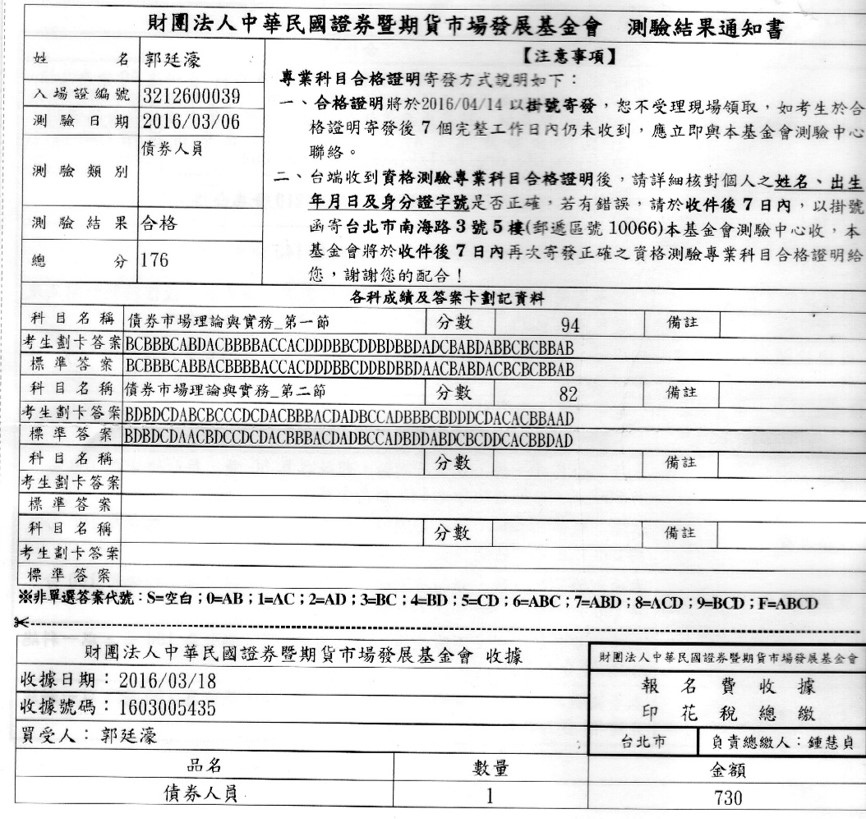 財團法人中華民國證券暨期貨市場發展基金會 測驗結果通知書
姓名 郭廷濠
入場證編號 3212600039
測驗日期 2016/03/06
測驗類別 債券人員
測驗結果 合格
總分 176
【注意事項】
專業科目合格證明寄發方式說明如下：
一、合格證明將於2016/04/14以掛號寄發，恕不受理現場領取，如考生於合
格證明寄發後7個完整工作日內仍未收到，應立即與本基金會測驗中心
聯絡。
二、台端收到資格測驗專業科目合格證明後，請詳細核對個人之姓名、出生
年月日及身分證字號是否正確，若有錯誤，請於收件後7日內，以掛號
函寄台北市南海路3號5樓(郵遞區號10066)本基金會測驗中心收，本
基金會將於收件後7日內再次寄發正確之資格測驗專業科目合格證明給
您，謝謝您的配合！
各科成績及答案卡劃記資料
科目名稱 債券市場理論與實務_第一節 分數 94 備註
考生劃卡答案 BCBBBCABDACBBBBACCACDDDBBCDDBDBBDADCBABDABBCBCBBAB
標準答案 BCBBBCABBACBBBBACCACDDDBBCDDBDBBDAACBABDACBCBCBBAB
科目名稱 債券市場理論與實務_第二節 分數 82 備註
考生劃卡答案 BDBDCDABCBCCCDCDACBBBACDADBCCADBBBCBDDDCDACACBBAAD
標準答案 BDBDCDAACBDCCDCDACBBBACDADBCCADBDDABDCBCDDCACBBDAD
科目名稱 分數 備註
考生劃卡答案
標準答案
科目名稱 分數 備註
考生劃卡答案
標準答案
※非單選答案代號：S=空白；0=AB；1=AC；2=AD；3=BC；4=BD；5=CD；6=ABC；7=ABD；8=ACD；9=BCD；F=ABCD
財團法人中華民國證券暨期貨市場發展基金會 收據
收據日期：2016/03/18
收據號碼：1603005435
買受人：郭廷濠
財團法人中華民國證券暨期貨市場發展基金會
報名費收據
印花稅總繳
台北市 負責總繳人：鍾慧貞
品名 數量 金額
債券人員 1 730